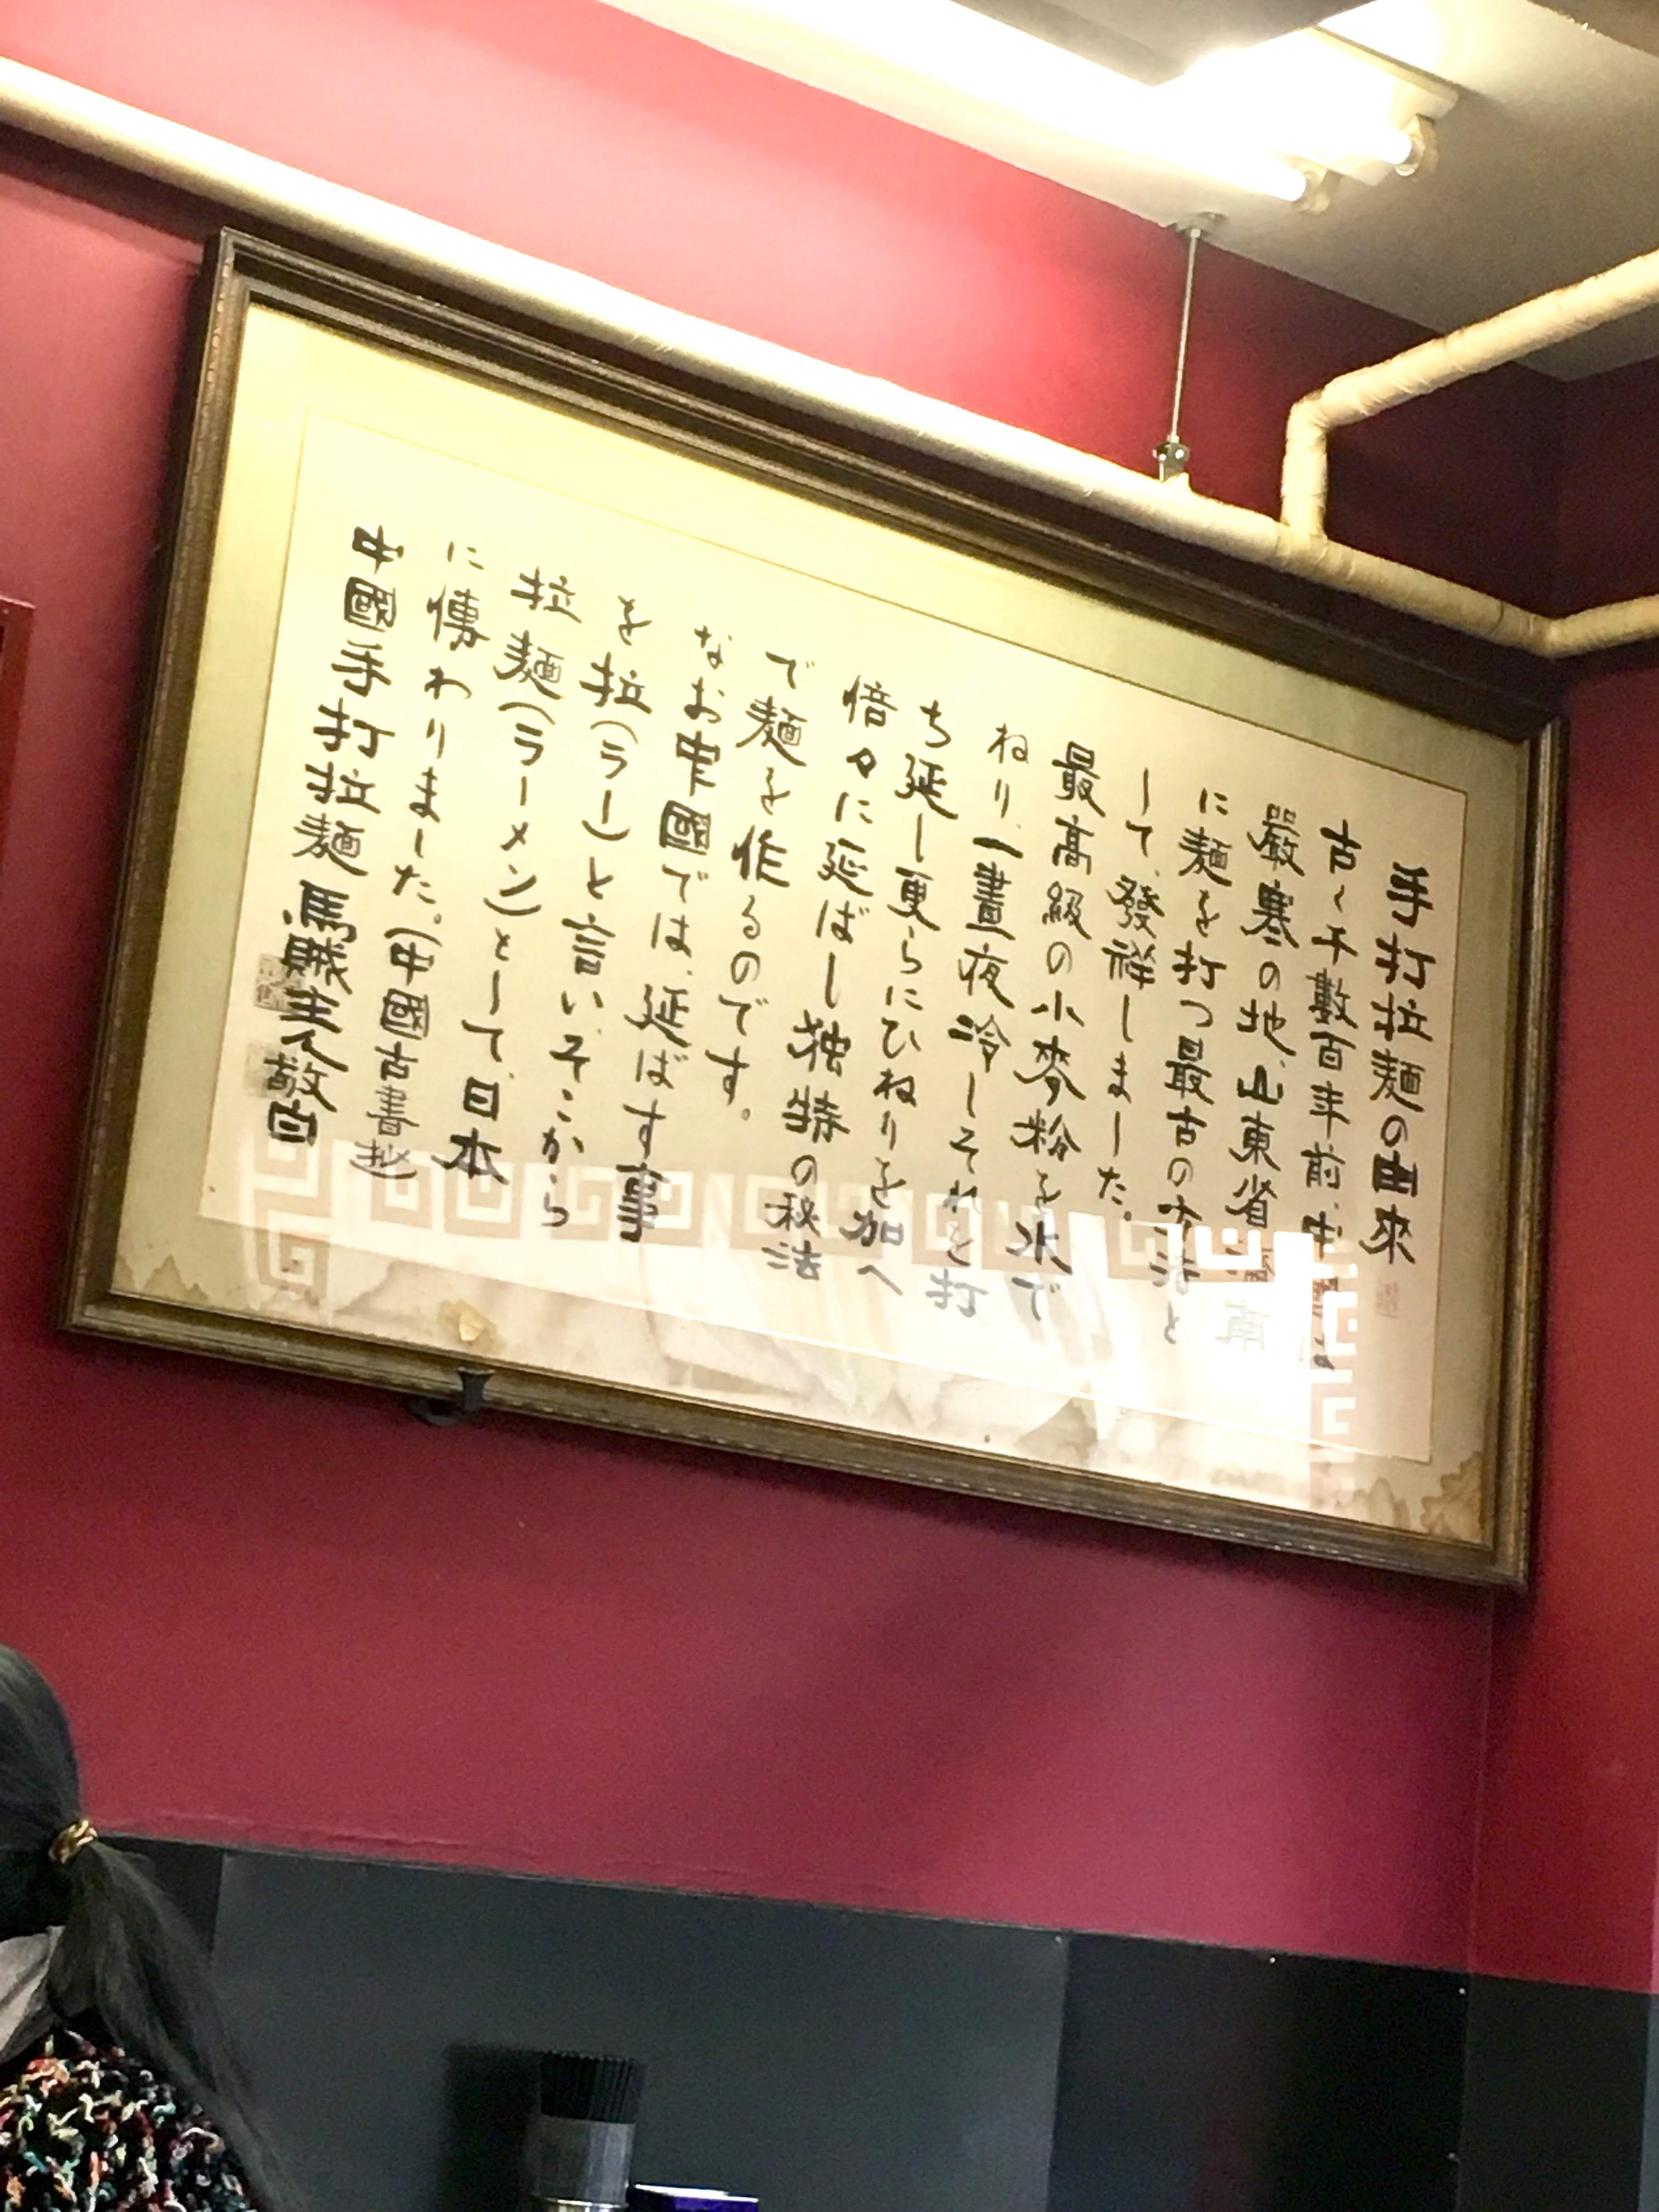 手打拉麺の由來
古く千數百年前、中國の
嚴寒の地、山東省
に麺を打つ最古の方法と
して、發祥しました。
最高級の小麥粉を水で
ねり、一晝夜冷しそれを打
ち延し更らにひねりを加へ
倍々に延ばし独特の秘法
で麺を作るのです。
なお中國では、延ばす事
を拉(ラー)と言い、そこから
拉麺(ラーメン)として、日本
に傳わりました。(中國古書
中國手打拉麺 馬賊 主人敬白